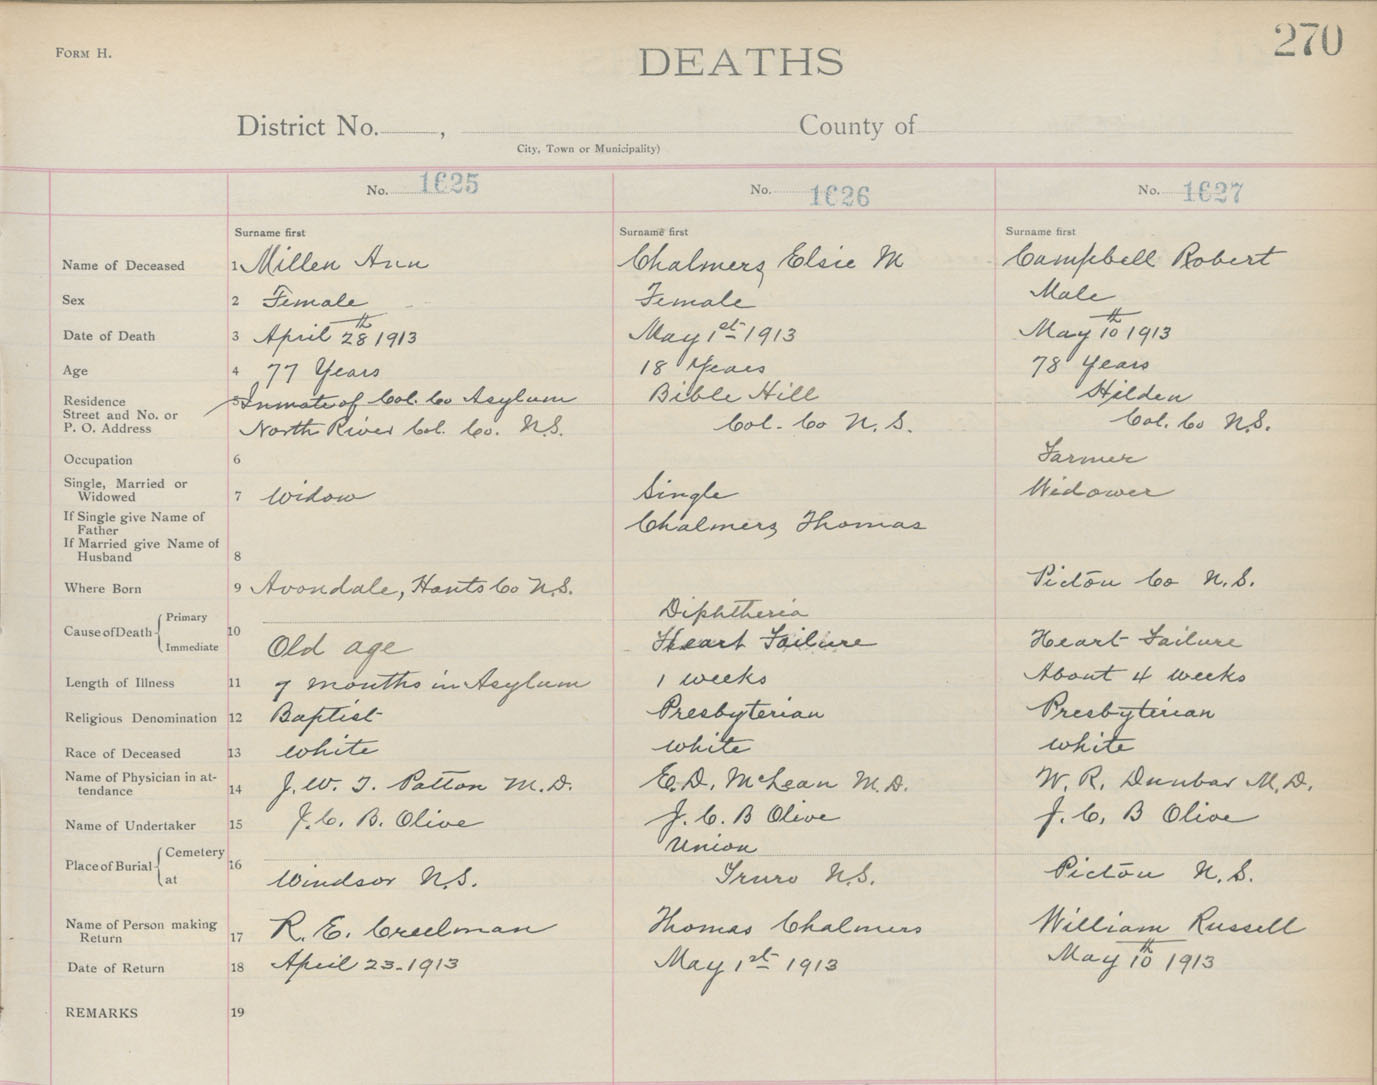 270
FORM H.
DEATHS
District No. , County of
City, Town or Municipality)
No. 1625 No. 1626 No. 1627
Surname first Surname first Surname first
Name of Deceased 1 Millen Ann Chalmers, Elsie M Campbell Robert
Sex 2 Female Female Male
Date of Death 3 April 28th 1913 May 1st 1913 May 10th 1913
Age 4 77 Years 18 Years 78 Years
Residence 5 Inmate of Col. Co Asylum Bible Hill Hilden
Street and No. or
P. O. Address North River Col. Co. N.S. Col. Co N.S. Col. Co N.S.
Occupation 6 Farmer
Single, Married or
Widowed 7 Widow Single Widower
If Single give Name of
Father Chalmers, Thomas
If Married give Name of
Husband 8
Where Born 9 Avondale, Hants Co N.S. Pictou Co N.S.
Cause of Death Primary Diphtheria
10
Immediate Old age Heart Failure Heart Failure
Length of Illness 11 7 months in Asylum 1 weeks About 4 weeks
Religious Denomination 12 Baptist Presbyterian Presbyterian
Race of Deceased 13 White White White
Name of Physician in at-
tendance 14 J. W. T. Patton M.D. E. D. McLean M.D. W. R. Dunbar M.D.
Name of Undertaker 15 J. C. B. Olive J. C. B Olive J. C. B Olive
Place of Burial Cemetery Union
16
at Windsor N.S. Truro N.S. Pictou N.S.
Name of Person making
Return 17 R. E. Creelman Thomas Chalmers William Russell
Date of Return 18 April 23-1913 May 1st 1913 May 10th 1913
REMARKS 19